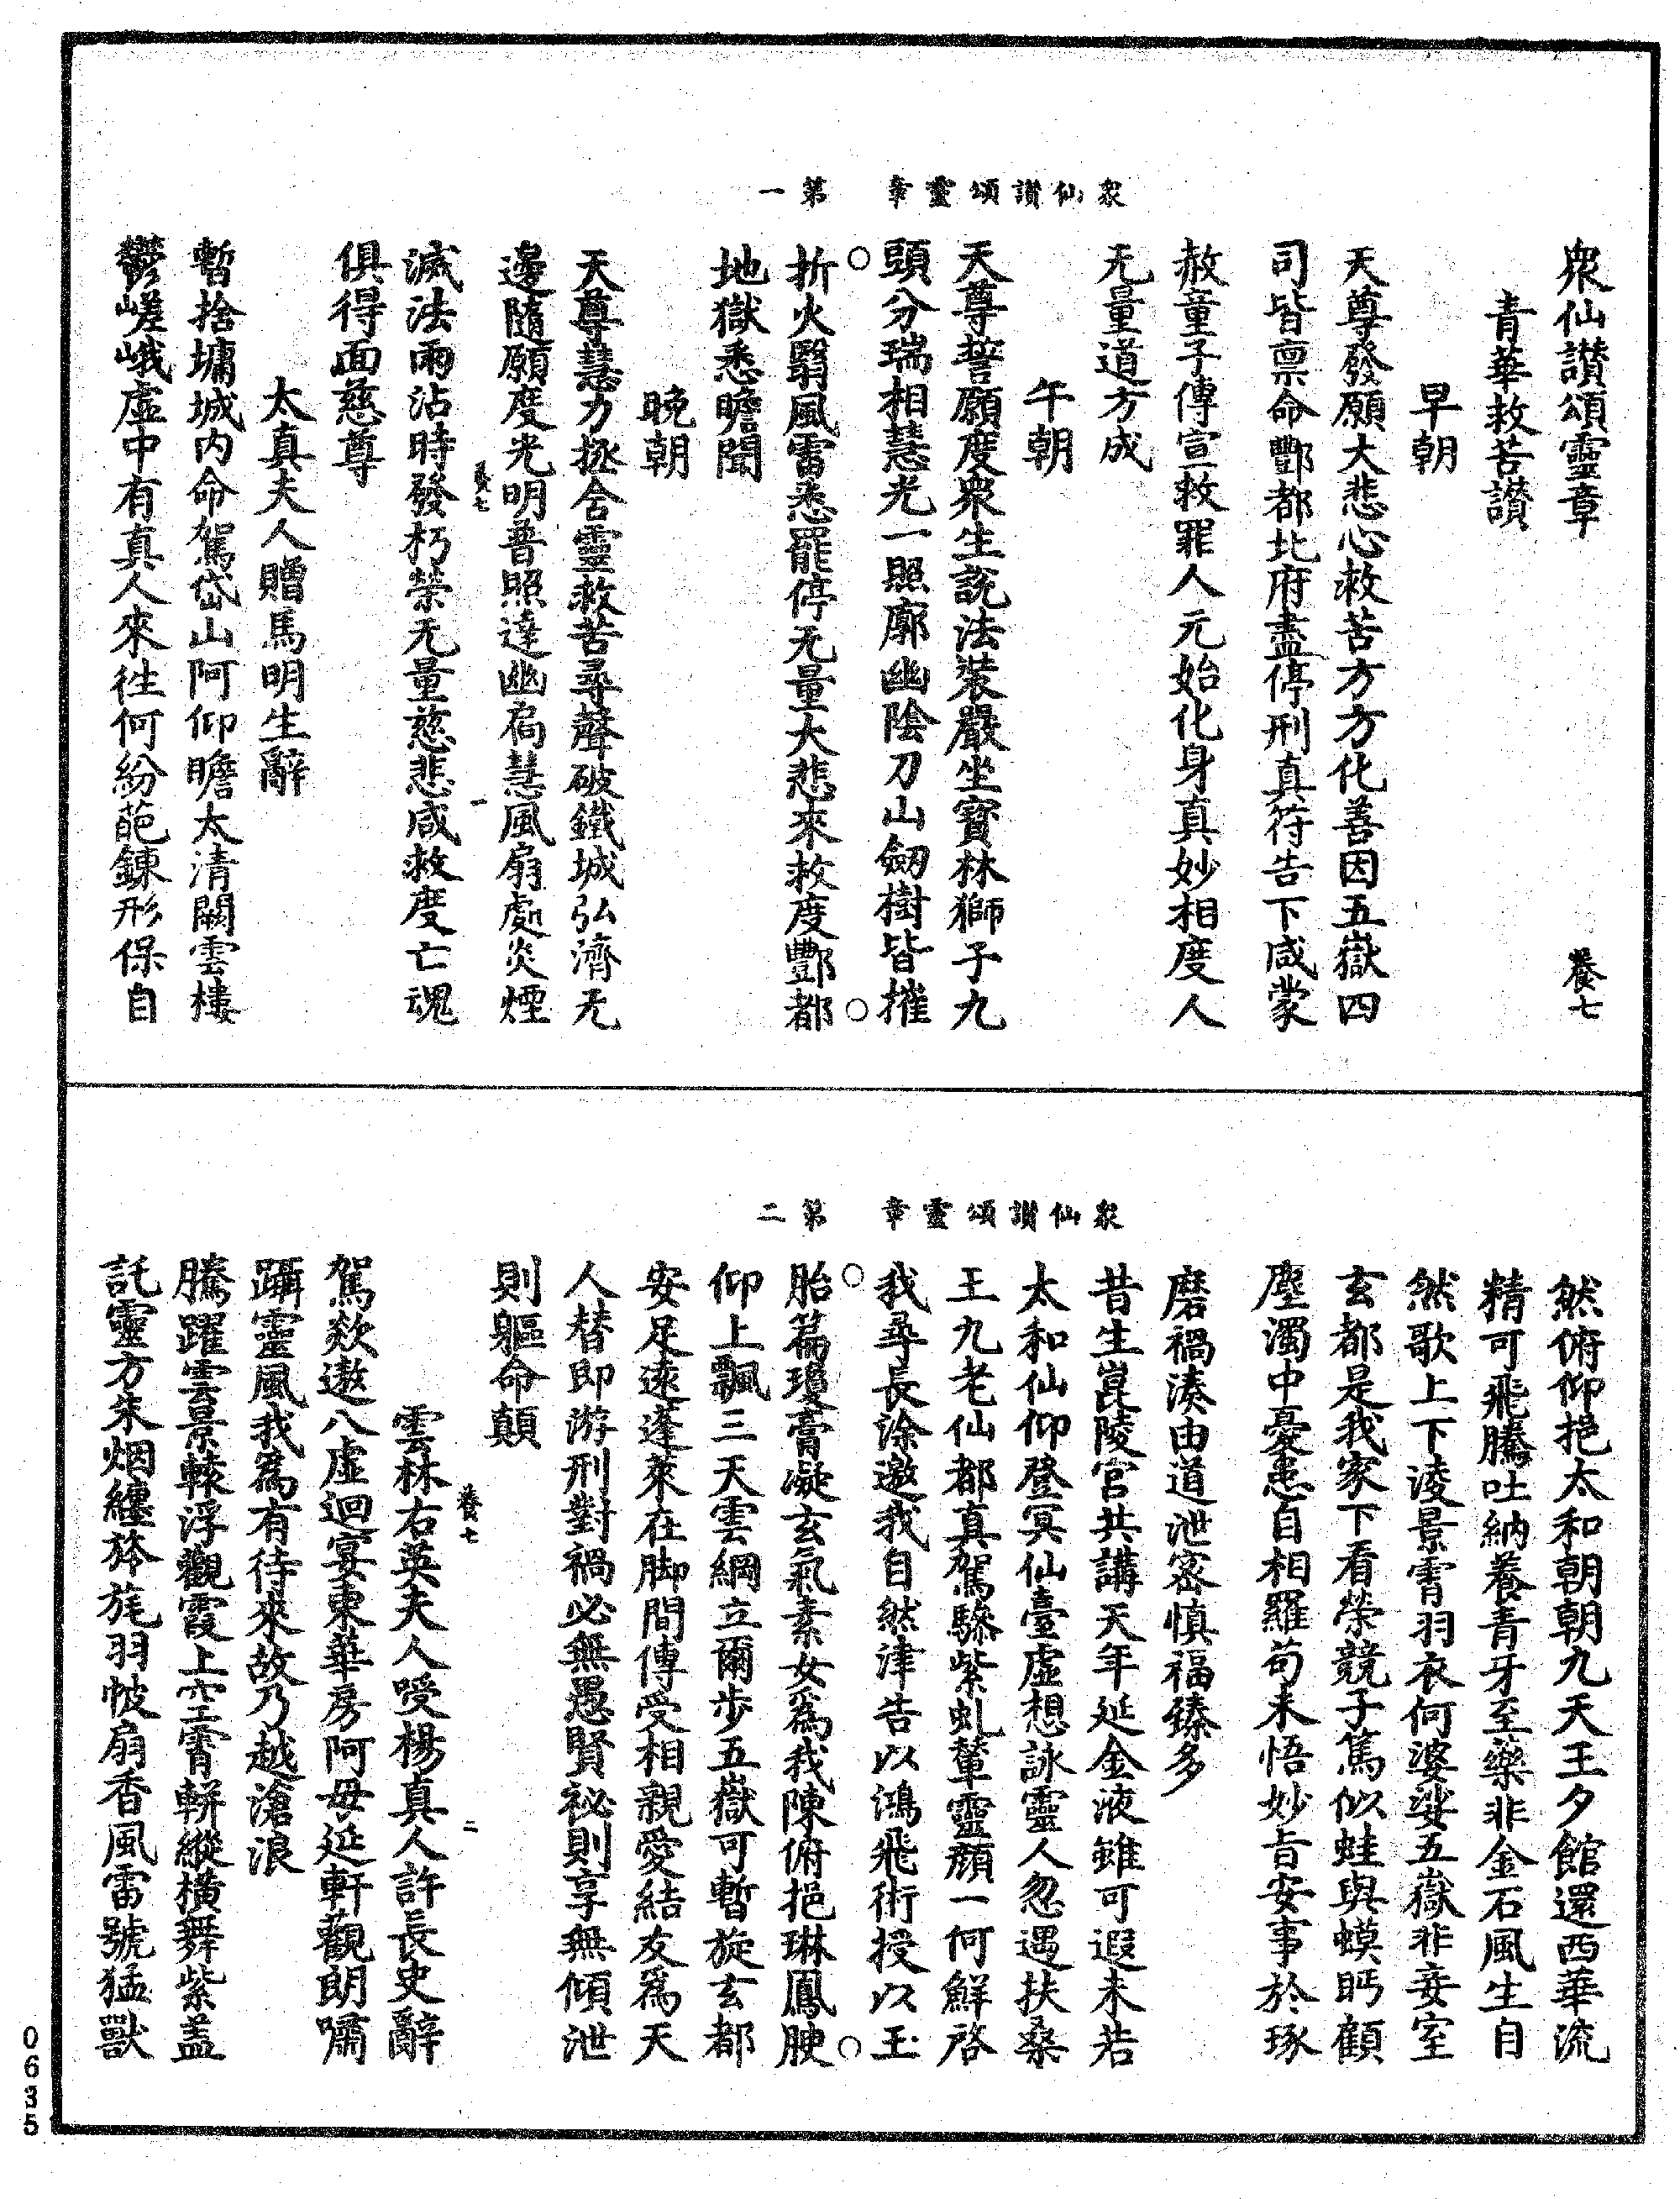 衆仙讃頌靈章 第一
衆仙讃頌靈章 養七
青華救苦讃
早朝
天尊發願大悲心救苦方方化善因五嶽四
司皆禀命酆都北府盡停刑真符告下咸蒙
赦童子傳宣救罪人元始化身真妙相度人
无量道方成
午朝
天尊誓願度衆生説法裝嚴坐寶林獅子九
頭分瑞相慧光一照廓幽陰刀山劒樹皆摧
折火翳風雷悉罷停无量大悲來救度酆都
地獄悉瞻聞
晚朝
天尊慧力拯含靈救苦尋聲破鐵城弘濟无
邊隨願度光明普照達幽扃慧風扇處炎煙
養七 一
滅法雨沾時發朽榮无量慈悲咸救度亡魂
俱得面慈尊
太真夫人贈馬明生辭
暫捨墉城内命駕岱山阿仰瞻太清闕雲樓
鬱嵯峨虛中有真人來往何紛葩鍊形保自
衆仙讃頌靈章 第二
然俯仰挹太和朝朝九天王夕館還西華流
精可飛騰吐納養青牙至藥非金石風生自
然歌上下淩景霄羽衣何婆娑五嶽非妾室
玄都是我家下看榮競子篤似蛙與蟆眄顧
塵濁中憂患自相羅苟未悟妙旨安事於琢
磨禍湊由道泄密慎福臻多
昔生崑陵宮共講天年延金液雖可遐未若
太和仙仰登冥仙臺虛想詠靈人忽遇扶桑
王九老仙都真駕驂紫虬輦靈顔一何鮮啓
我尋長涂邀我自然津告以鴻飛術授以玉
胎篇瓊膏凝玄氣素女爲我陳俯挹琳鳳腴
仰上飄三天雲綱立爾步五嶽可暫旋玄都
安足遠蓬萊在脚間傳受相親愛結友爲天
人替即游刑對禍必無愚賢祕則享無傾泄
則軀命顛
養七 二
雲林右英夫人嗳楊真人許長史辭
駕欻遨八虛迴宴東華房阿母延軒觀朗嘯
躡靈風我爲有待來故乃越滄浪
騰躍雲景轅浮觀霞上空霄軿縱横舞紫盖
託靈方朱烟纏旍旄羽帔扇香風雷號猛獸
0635